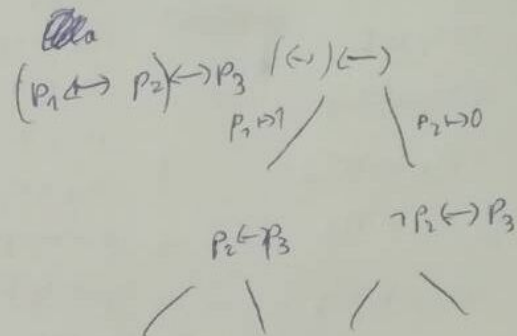 (p₁ ↔ p₂) ↔ p₃ (↔)(↔)
p₁ ↦ 1 p₂ ↦ 0
p₂ ↔ p₃ ¬p₂ ↔ p₃